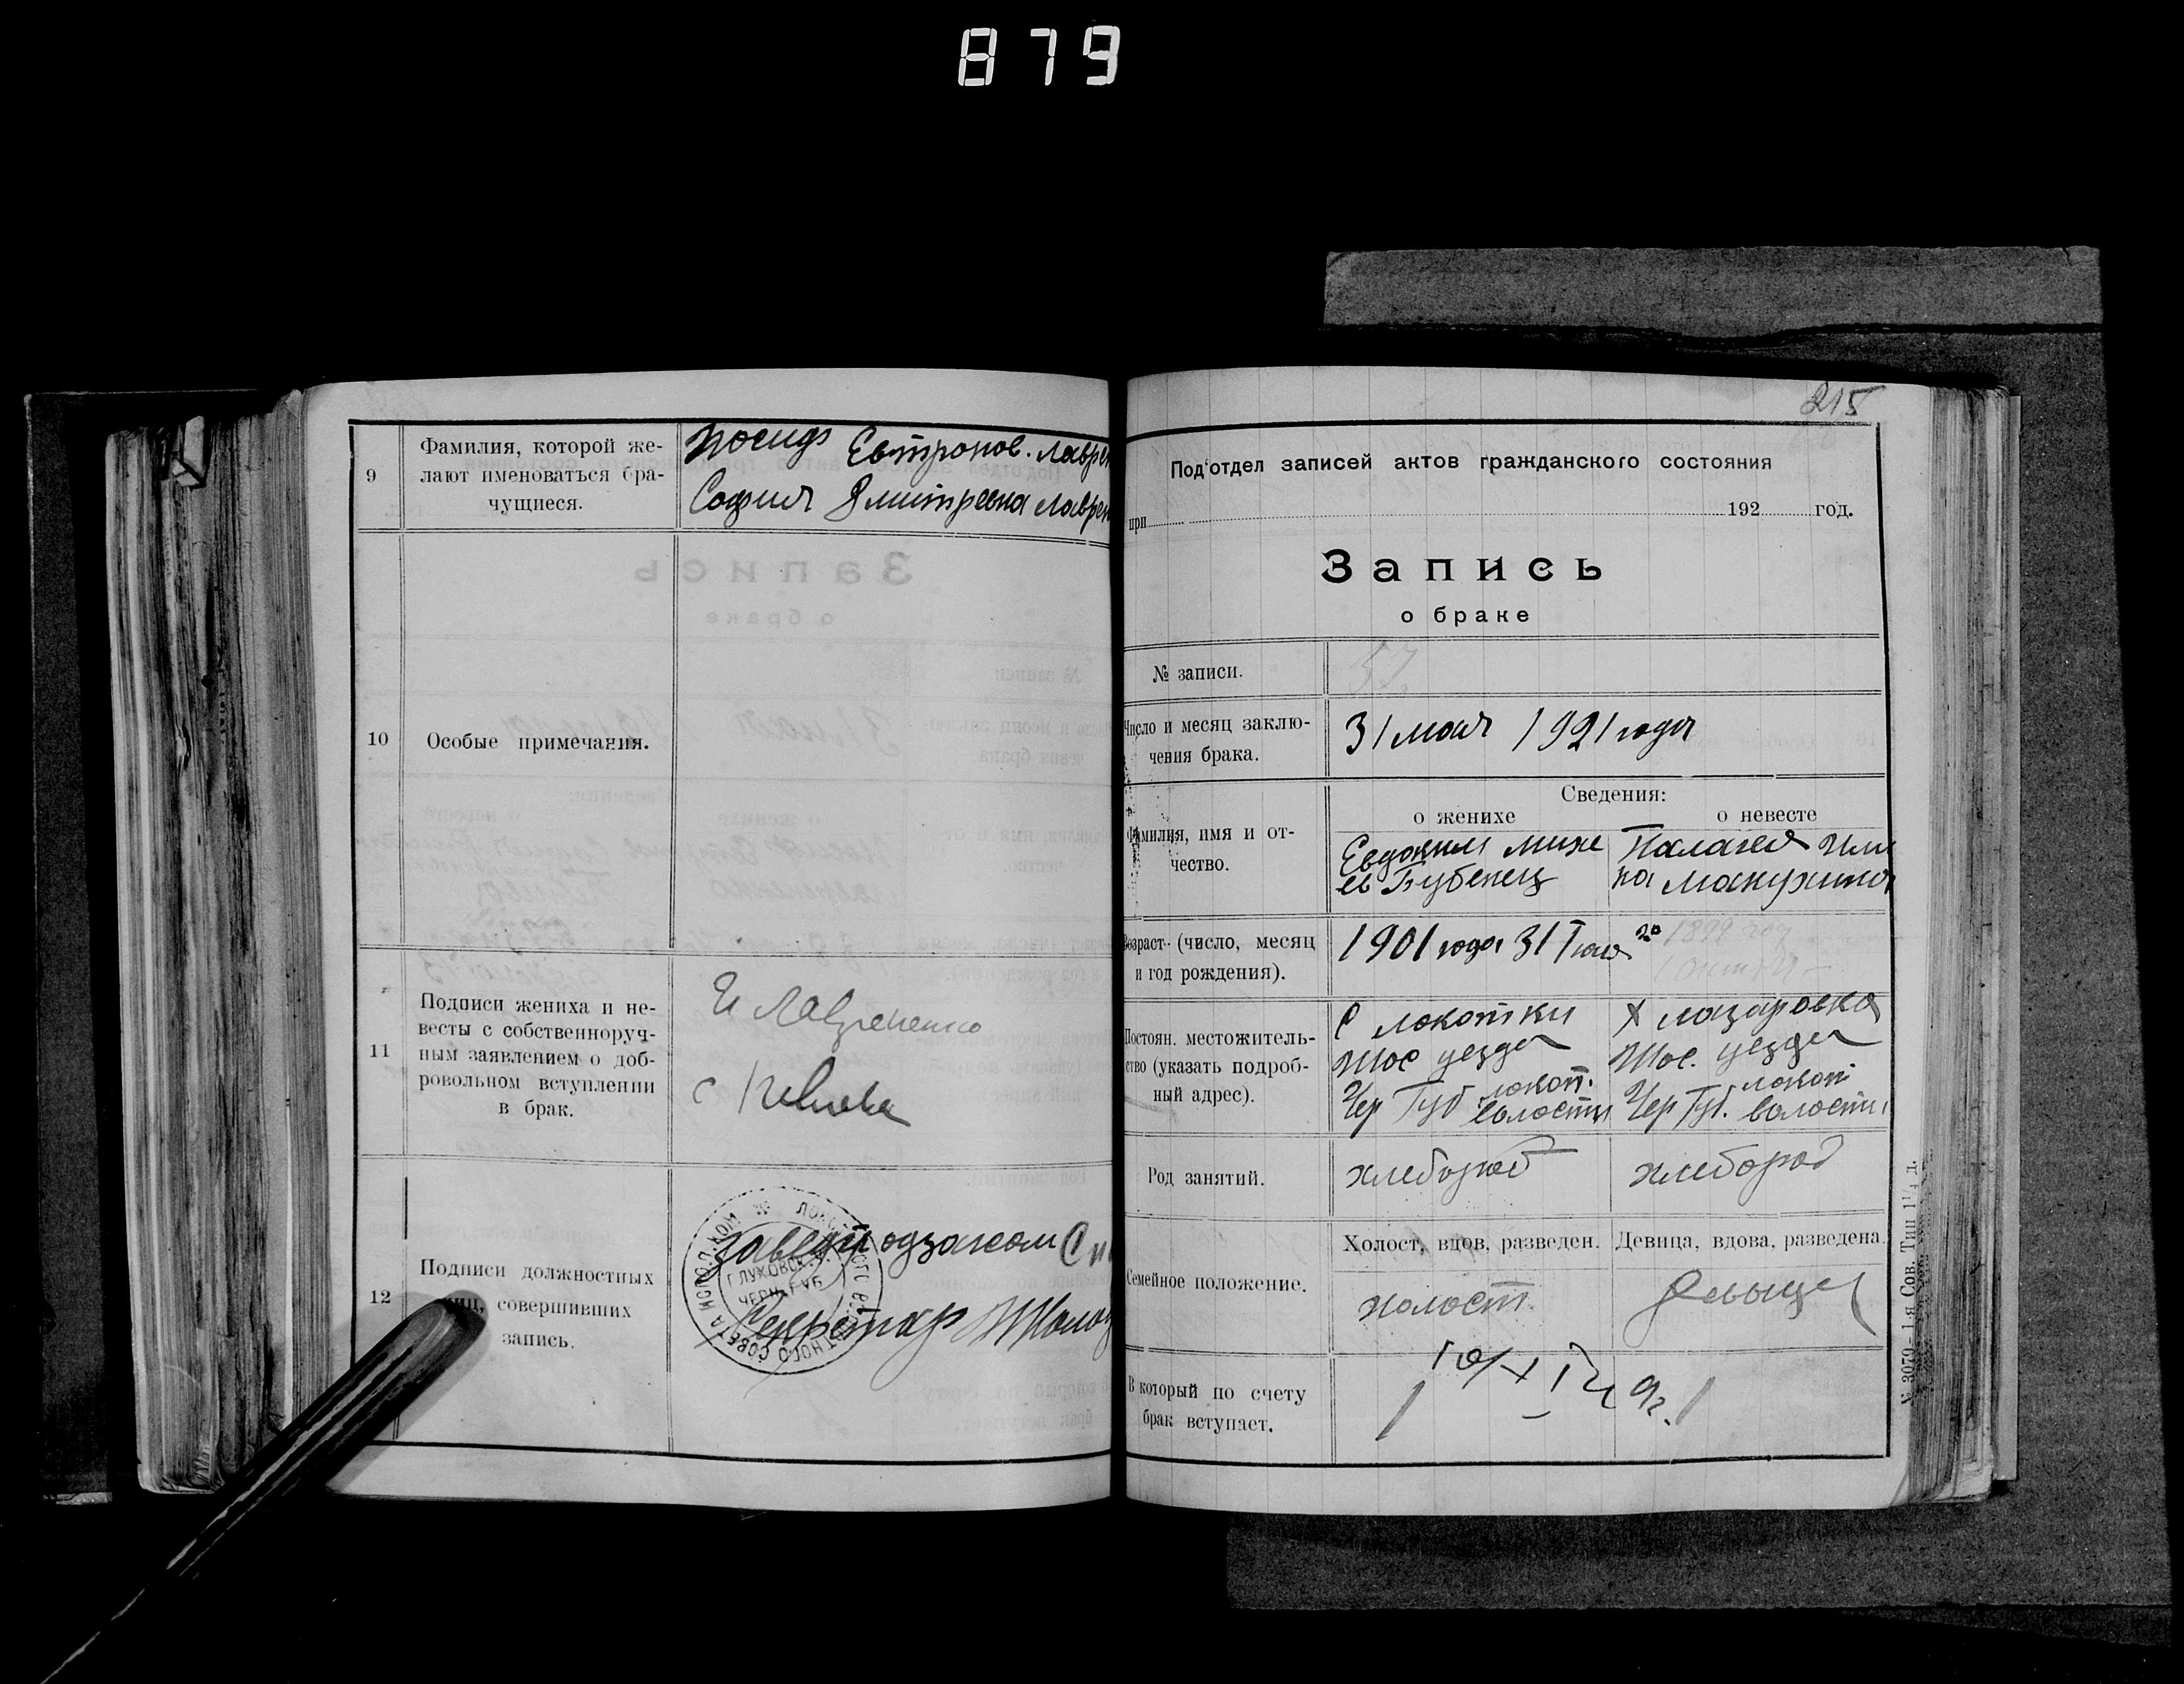 879
9
Фамилия, которой же-
лают именоваться бра-
чущиеся.
Иосиф Евтропов. Лаврен
София Дмитревна Лаврен
10
Особые примечания.
11
Подписи жениха и не-
весты с собственноруч-
ным заявлением о доб-
ровольном вступлении
в брак.
И Лавриненко
С
12
Подписи должностных
лиц, совершивших
запись.
Секретар
215
Под'отдел записей актов гражданского состояния
при 192 год.
Запись
о браке
№ записи.
57
Число и месяц заклю-
чения брака.
31 мая 1921 года
Сведения:
о женихе
о невесте
Фамилия, имя и от-
чество.
Евдоким Михе
ев Бубенец
Палагея Или
на Макухина
Возраст (число, месяц
и год рождения).
1901 года 31
1899 год
1
Постоян. местожитель-
ство (указать подроб-
ный адрес).
С Локотки
Шос уезда
Чер Губ локот.
волости
Х Лазаровка
Шос. уезда
Чер Губ. локот
волости
Род занятий.
хлебороб
хлебороб
Семейное положение.
Холост, вдов, разведен.
Девица, вдова, разведена.
холост.
Девыца
В который по счету
брак вступает.
1
1
№ 3079—1-я Сов. Тип